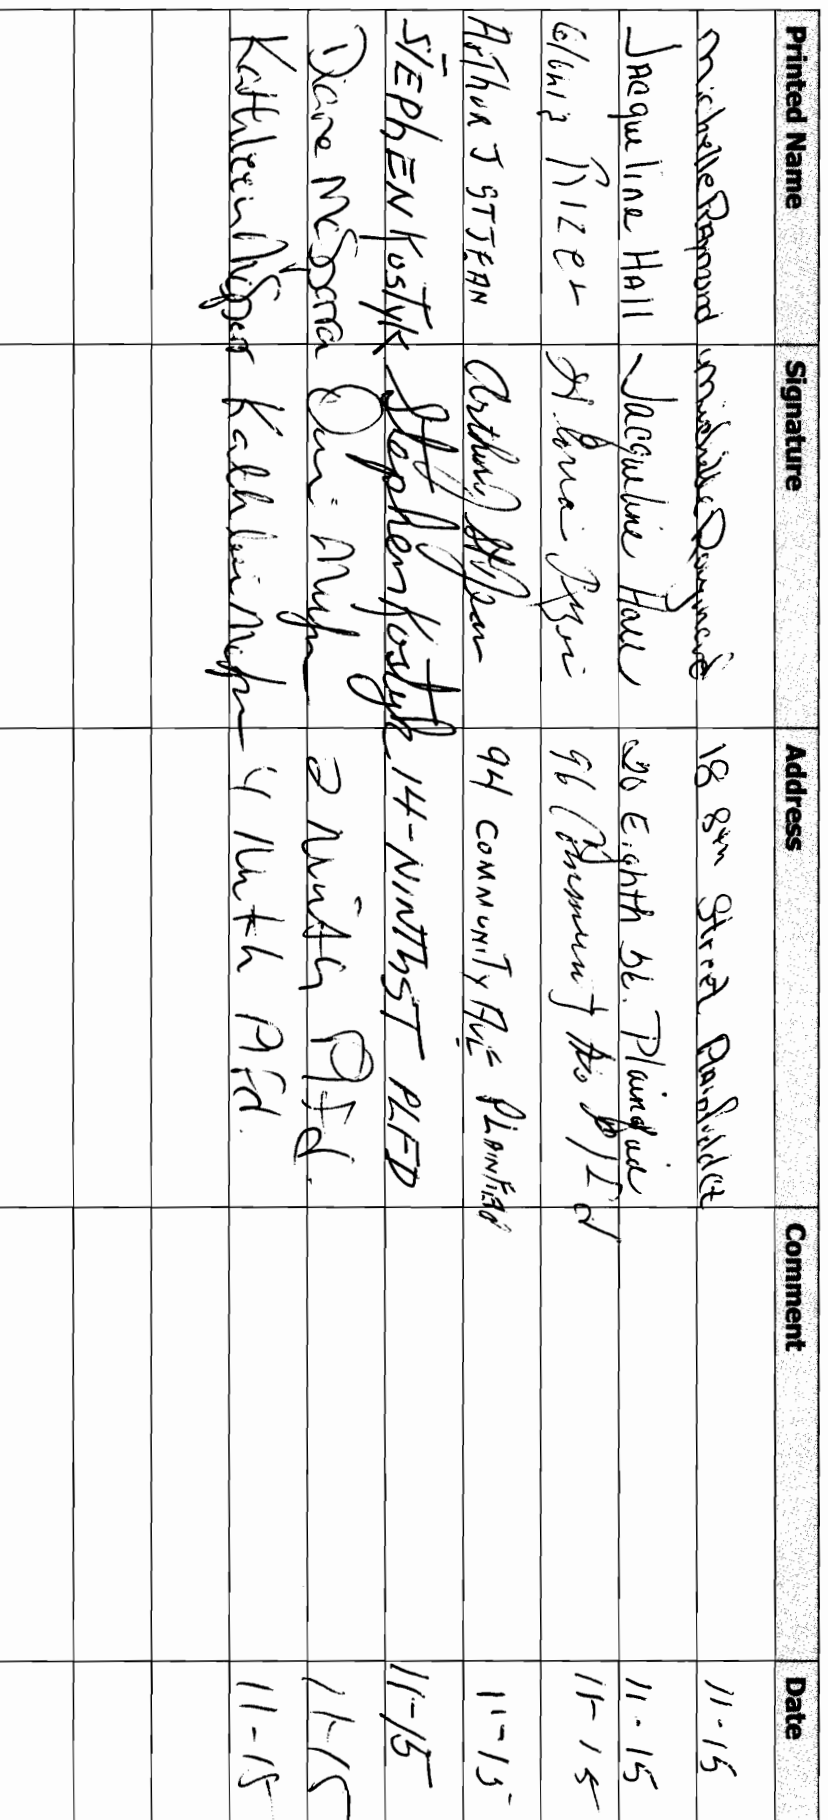 Printed Name Signature Address Comment Date
Michelle Raymond Michelle Raymond 18 8th Street Plainfield Ct 11-15
Jacqueline Hall Jacqueline Hall 20 Eighth St. Plainfield 11-15
Gloria 96 Community Av Plfd 11-15
Arthur J ST JEAN Arthur J St Jean 94 COMMUNITY AVE PLAINFIELD 11-15
STEPhEN KostyK Stephen Kostyk 14-NINTH ST PLFD 11-15
Diane 2 Ninth Plfd. 11-15
Kathleen Kathleen 4 Ninth Plfd. 11-15